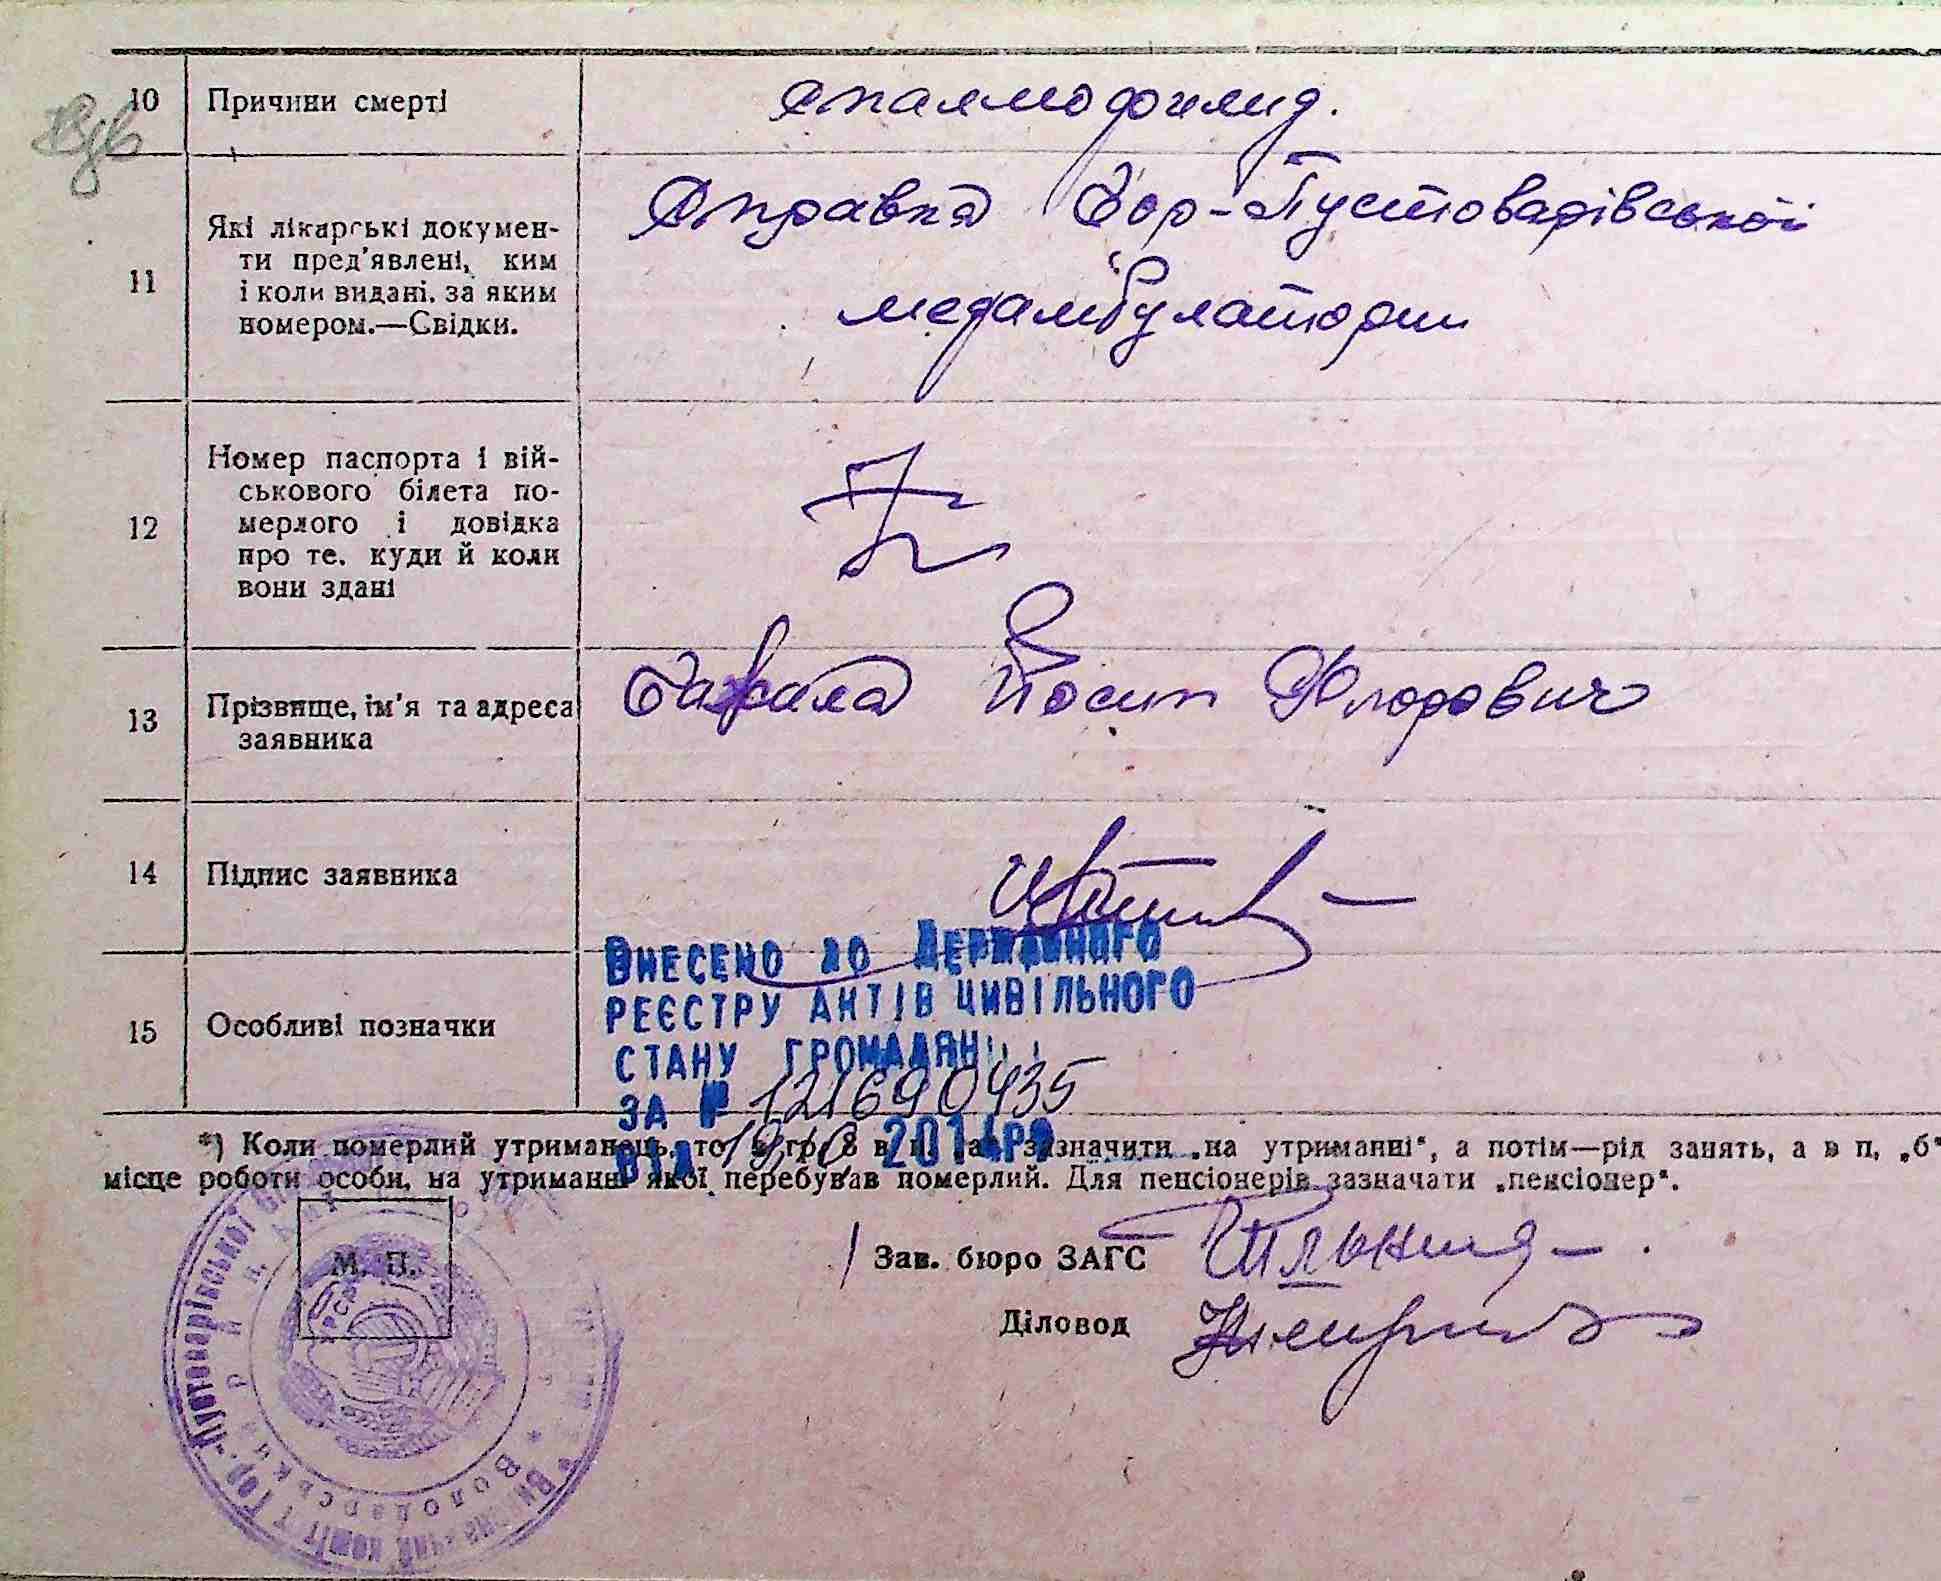 10 Причини смерті Спазмофилия.
11 Які лікарські докумен-
ти пред'явлені, ким
і коли видані, за яким
номером.—Свідки.
Справка Гор-Пустоварівської
медамбулатории
12 Номер паспорта і вій-
ськового білета по-
мерлого і довідка
про те, куди й коли
вони здані
13 Прізвище, ім'я та адреса
заявника
Йосип Федорович
14 Підпис заявника
15 Особливі позначки
Внесено до Державного
реєстру актів цивільного
стану громадян
за № 121690435
від 19.10 2014р
*) Коли померлий утриманець, то в гр. 8 в п. „а" зазначити „на утриманні", а потім—рід занять, а в п. „б"
місце роботи особи, на утриманні якої перебував померлий. Для пенсіонерів зазначати „пенсіонер".
М. П.
Зав. бюро ЗАГС
Діловод
Виконавчий комітет Гор.-Пустоварівської
Володарськ
УРСР